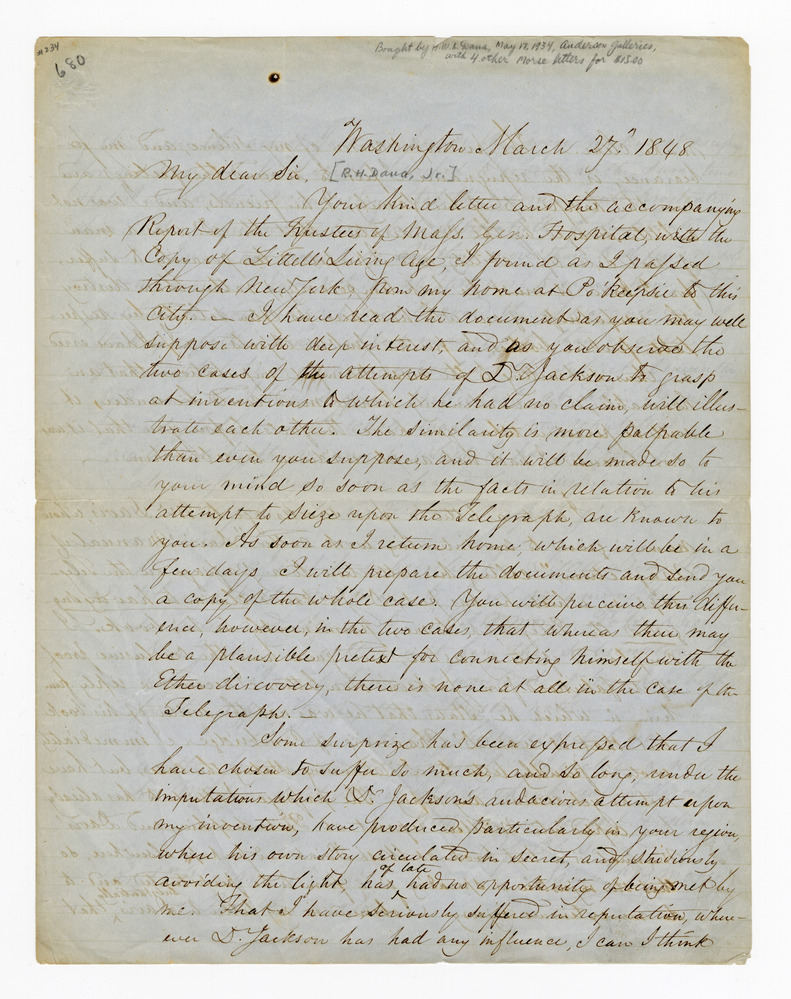 #234
680
Bought by H.W.L. Dana, May 17, 1934, Anderson Galleries,
with 4 other Morse letters for $15.00
Washington March 27. 1848
My dear Sir, [R.H. Dana, Sr.]
Your kind letter and the accompanying
Report of the Trustees of Mass. Gen. Hospital, with the
Copy of Littell's Living Age, I found as I passed
through New York, from my home at Po'keepsie to this
City. — I have read the document as you may well
suppose with deep interest, and as you observe the
two cases of the attempts of Dr. Jackson to grasp
at inventions to which he had no claim, will illus-
trate each other. The similarity is more palpable
than even you suppose, and it will be made so to
your mind so soon as the facts in relation to his
attempt to sieze upon the Telegraph, are known to
you. As soon as I return home, which will be in a
few days, I will prepare the documents and send you
a copy of the whole case. You will perceive this differ-
ence, however, in the two cases, that whereas there may
be a plausible pretext for connecting himself with the
Ether discovery, there is none at all in the case of the
Telegraph.
Some surprize has been expressed that I
have chosen to suffer so much, and so long, under the
imputations which Dr. Jackson's audacious attempt upon
my invention, have produced particularly in your region,
where his own story circulated in secret, and studiously
avoiding the light, has of late had no opportunity of being met by
me. That I have seriously suffered in reputation, where-
ever Dr. Jackson has had any influence, I can I think